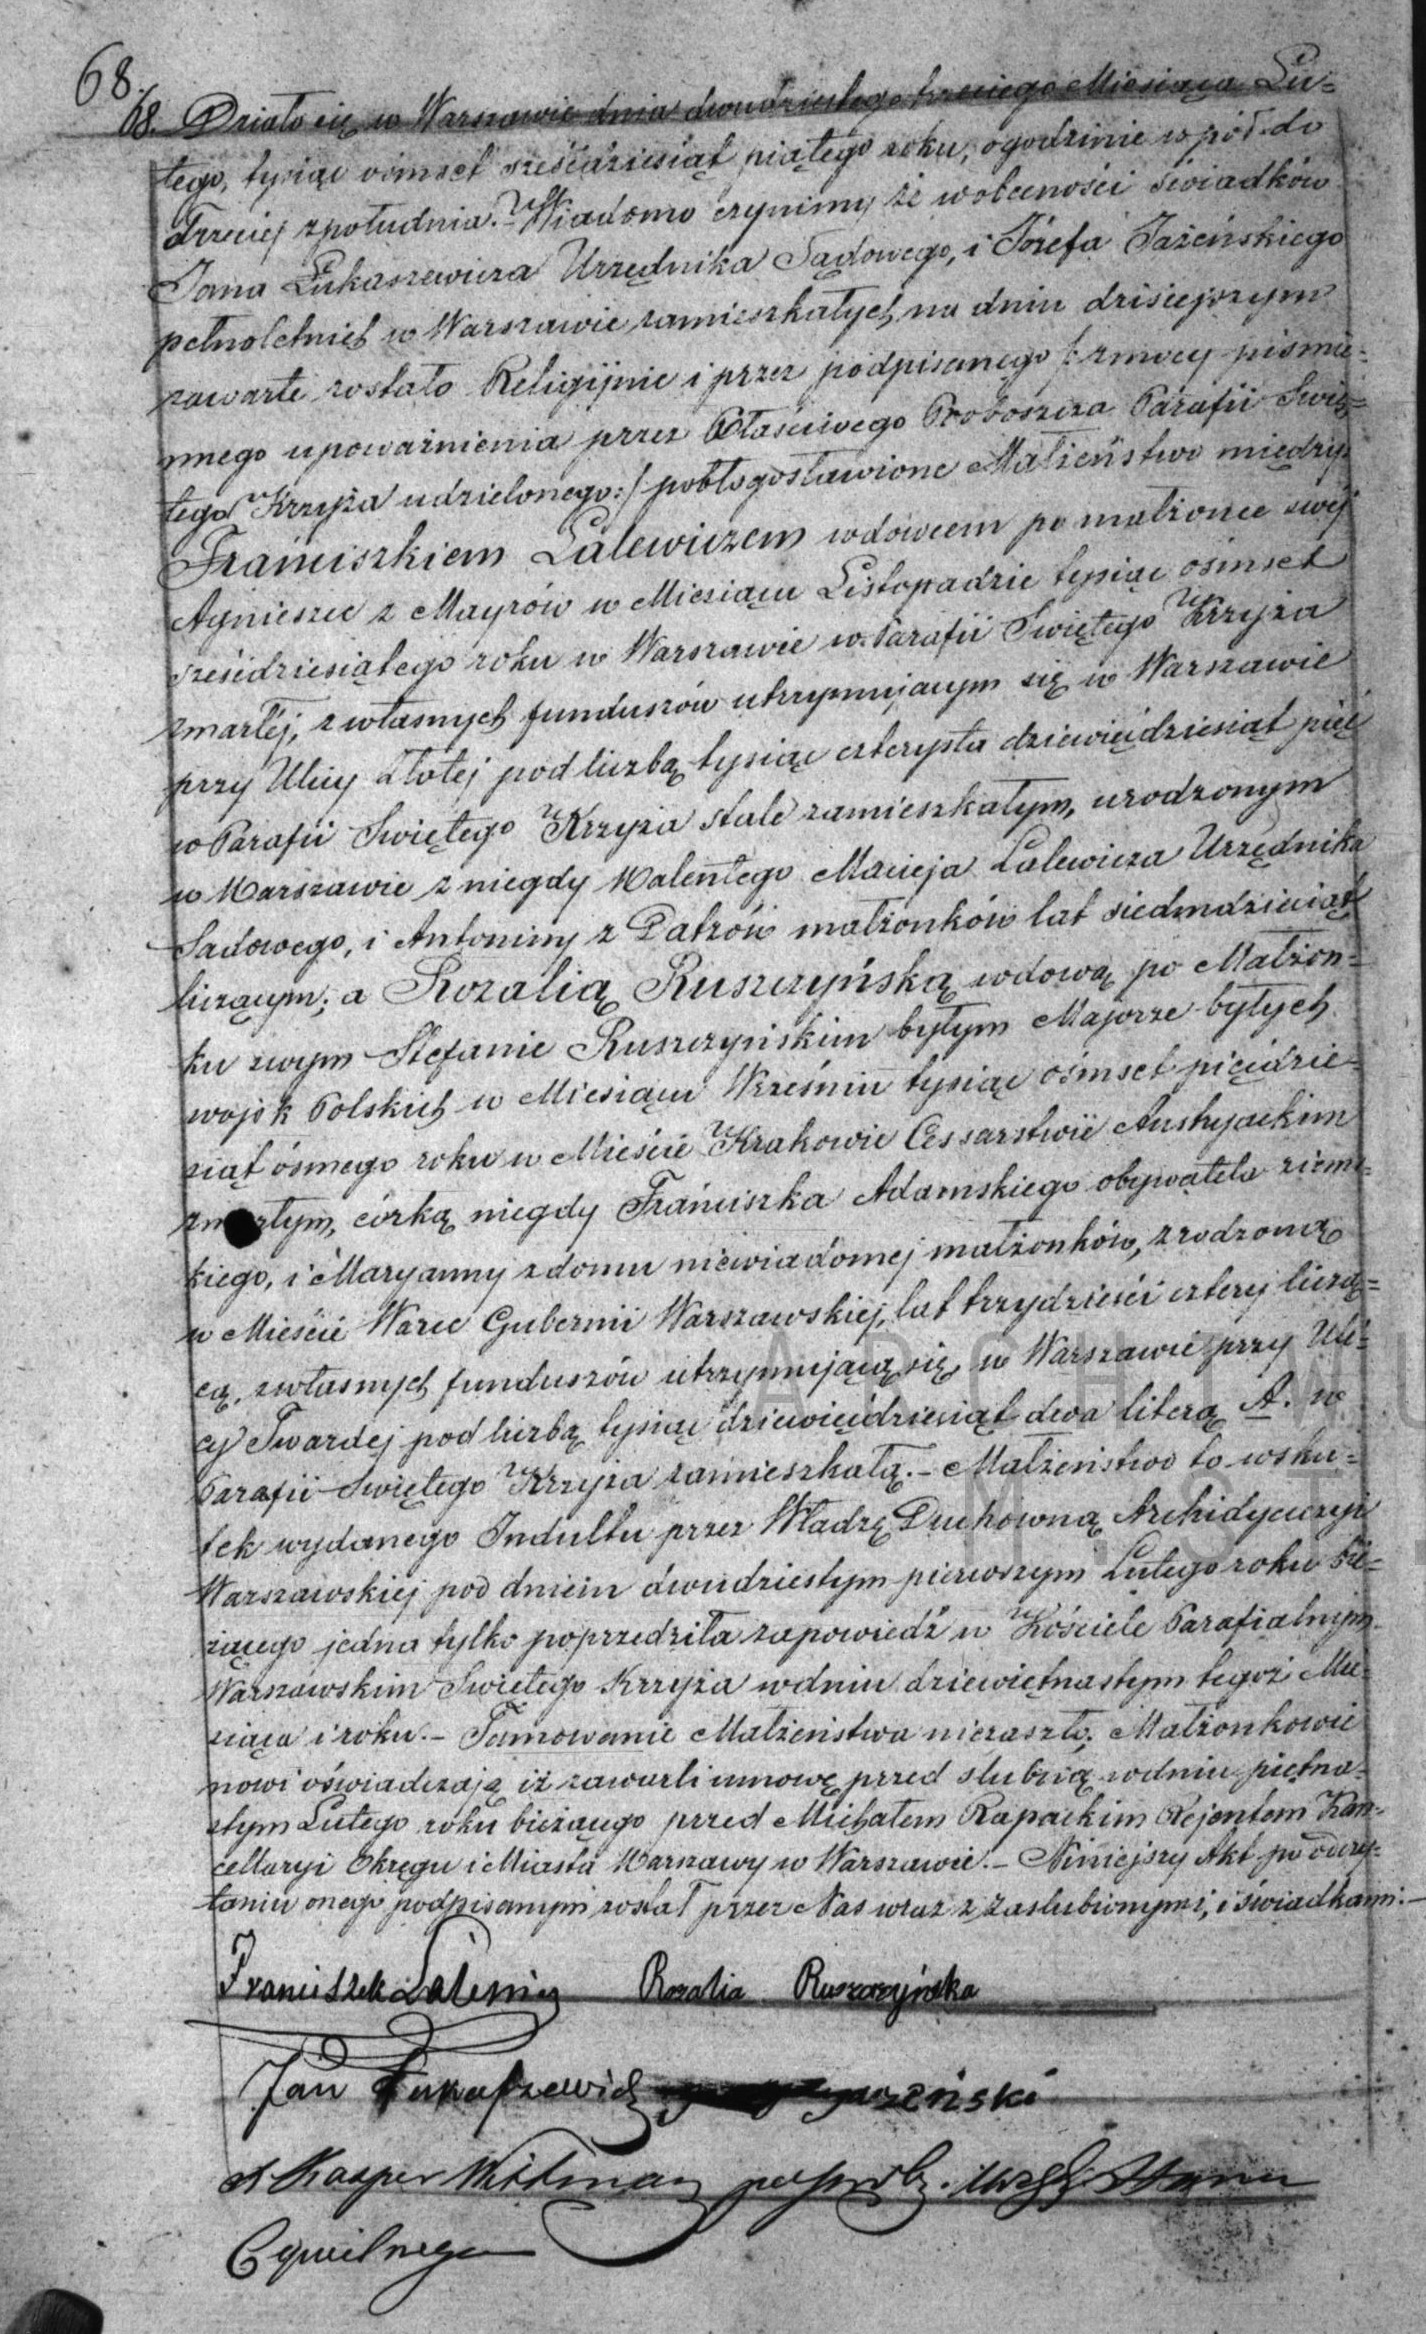 68.
68. Działo się w Warszawie dnia dwudziestego trzeciego Miesiąca Lu=
tego, tysiąc ośmset sześćdziesiąt piątego roku, o godzinie wpół do
Trzeciej z południa. Wiadomo czynimy że w obecności świadków
Jana Łukaszewicza Urzędnika Sądowego, i Józefa Jażeńskiego
pełnoletnich w Warszawie zamieszkałych, na dniu dzisiejszym
zawarte zostało Religijnie i przez podpisanego /: z mocy pismie=
nnego upoważnienia przez Właściwego Proboszcza Parafii Swię=
tego Krzyża udzielonego :/ pobłogosławione Małżeństwo między
Franciszkiem Lalewiczem wdowcem po małżonce swej
Agnieszce z Mayrów w Miesiącu Listopadzie tysiąc ośmset
sześćdziesiątego roku w Warszawie w Parafii Swiętego Krzyża
zmarłéj, z własnych funduszów utrzymującym się w Warszawie
przy Ulicy Złotej pod liczbą tysiąc czterysta dziewięćdziesiąt pięć
w Parafii Swiętego Krzyża stale zamieszkałym, urodzonym
w Warszawie z niegdy Walentego Macieja Lalewicza Urzędnika
Sadowego, i Antoniny z Datzów małżonków lat siedmdziesiąt
liczącym; a Rozalią Ruszczyńską wdową po Małżon=
ku swym Stefanie Ruszczyńskim byłym Majorze byłych
wojsk Polskich w Miesiącu Wrześniu tysiąc ośmset pięćdzie=
siąt ósmego roku w Mieście Krakowie Cessarstwie Austryackim
zmarłym, córką niegdy Franciszka Adamskiego obywatela ziems=
kiego, i Maryanny z domu niewiadomej małżonków, zrodzoną
w Mieście Warce Gubernii Warszawskiej, lat trzydzieści cztery liczą=
cą, z własnych funduszów utrzymującą się, w Warszawie przy Uli=
cy Twardej pod liczbą tysiąc dziewięćdziesiąt dwa literą A. w
Parafii Swiętego Krzyża zamieszkałą.– Małżeństwo to wsku=
tek wydanego Indultu przez Władzę Duchowną Archidyecezyi
Warszawskiej pod dniem dwudziestym pierwszym Lutego roku bie=
żącego jedna tylko poprzedziła zapowiedź w Kościele Parafialnym
Warszawskim Swiętego Krzyża w dniu dziewiętnastym tegoż Mie=
siąca i roku.– Tamowanie Małżeństwa nie zaszło; Małżonkowie
nowi oświadczają iż zawarli umowę przed slubną w dniu piętna=
stym Lutego roku bieżącego przed Michałem Rapackim Rejentem Kan=
cellaryi Okręgu i Miasta Warszawy w Warszawie.– Niniejszy Akt po odczy=
taniu onego podpisanym został przez Nas wraz z zaslubionymi, i świadkami.–
Franciszek Lalewicz Rozalia Ruszczyńska
Jan Łukaszewicz
X Kasper Wittman Urz. Stanu
Cywilnego
ARCHIWU
M.ST.